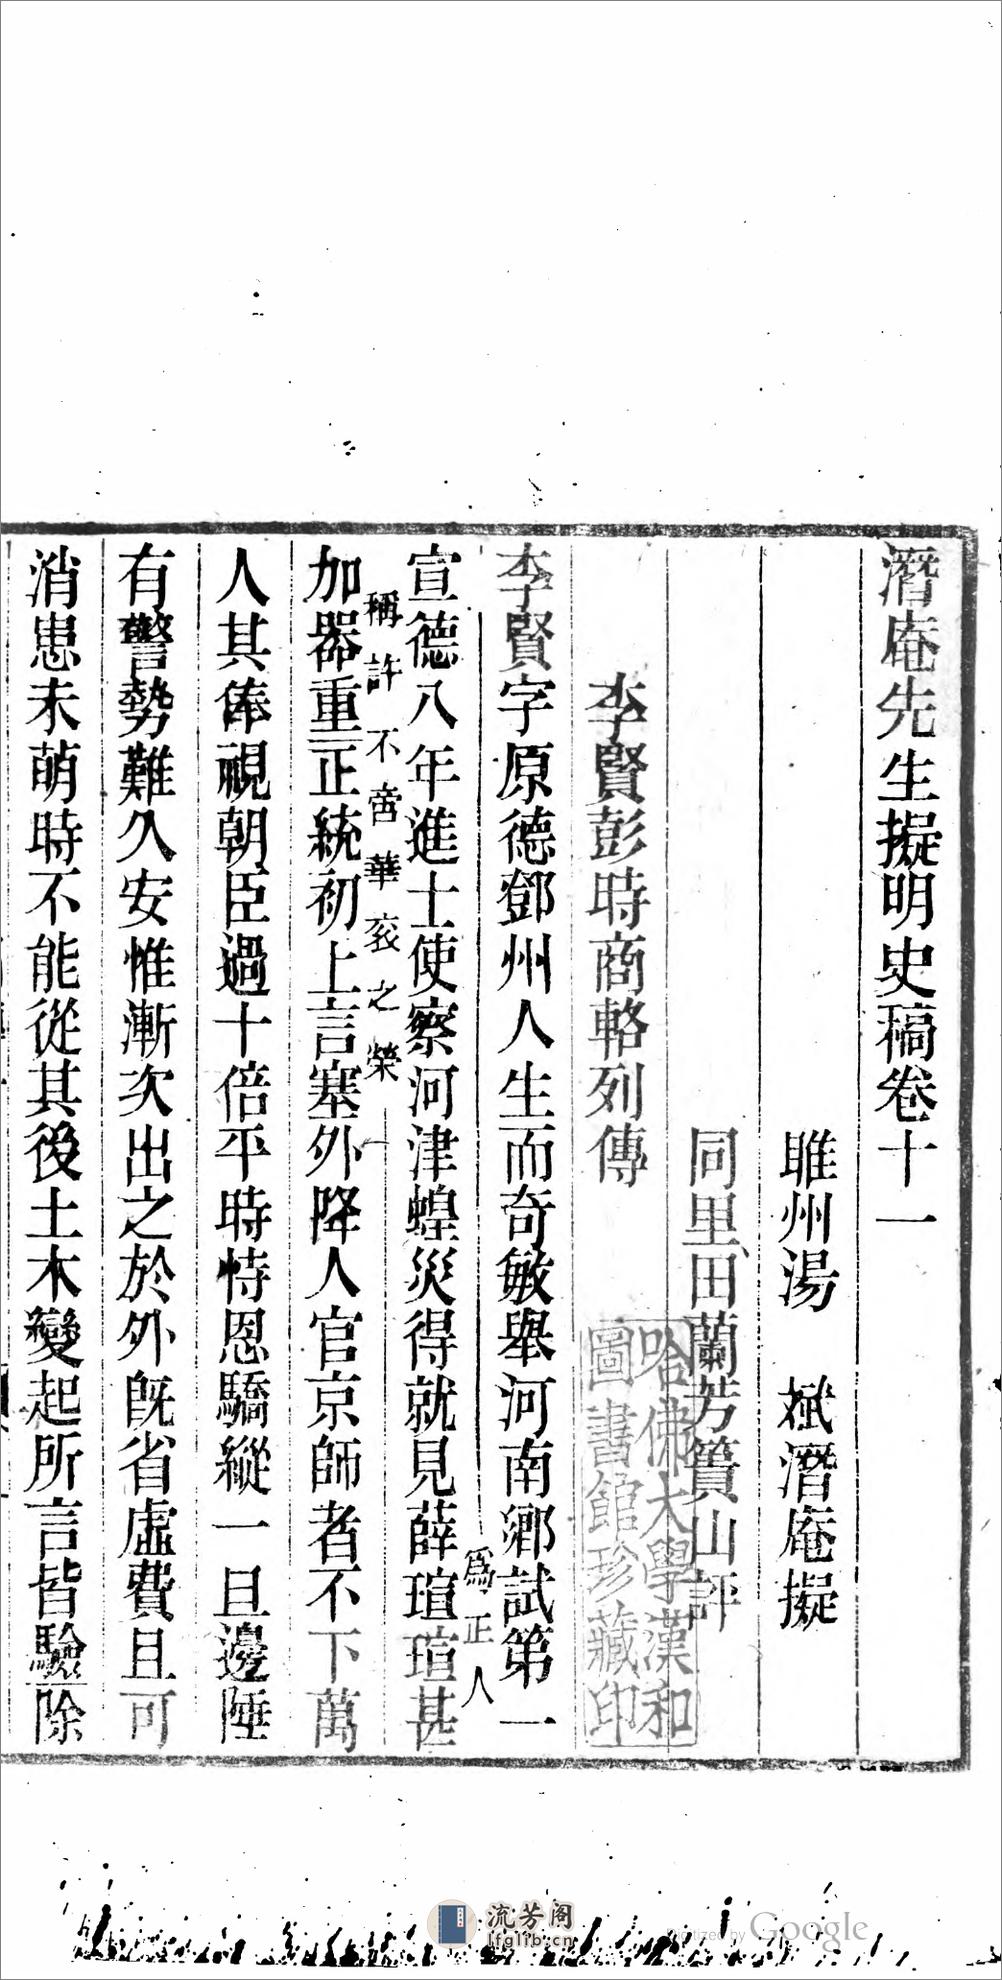 潛庵先生擬明史稿卷十一
睢州湯　斌潛庵擬
同里田蘭芳簣山評
李賢彭時商輅列傳
李賢字原德鄧州人生而奇敏舉河南鄉試第一
宣德八年進士使察河津蝗災得就見薛瑄瑄甚
爲正人
稱許不啻華衮之榮
加器重正統初上言塞外降人官京師者不下萬
人其俸視朝臣過十倍平時恃恩驕縱一旦邊陲
有警勢難久安惟漸次出之於外旣省虛費且可
消患未萌時不能從其後土木變起所言皆驗除
哈佛大學漢和
圖書館珍藏印
流芳阁
lfglib.cn
Digitized by Google